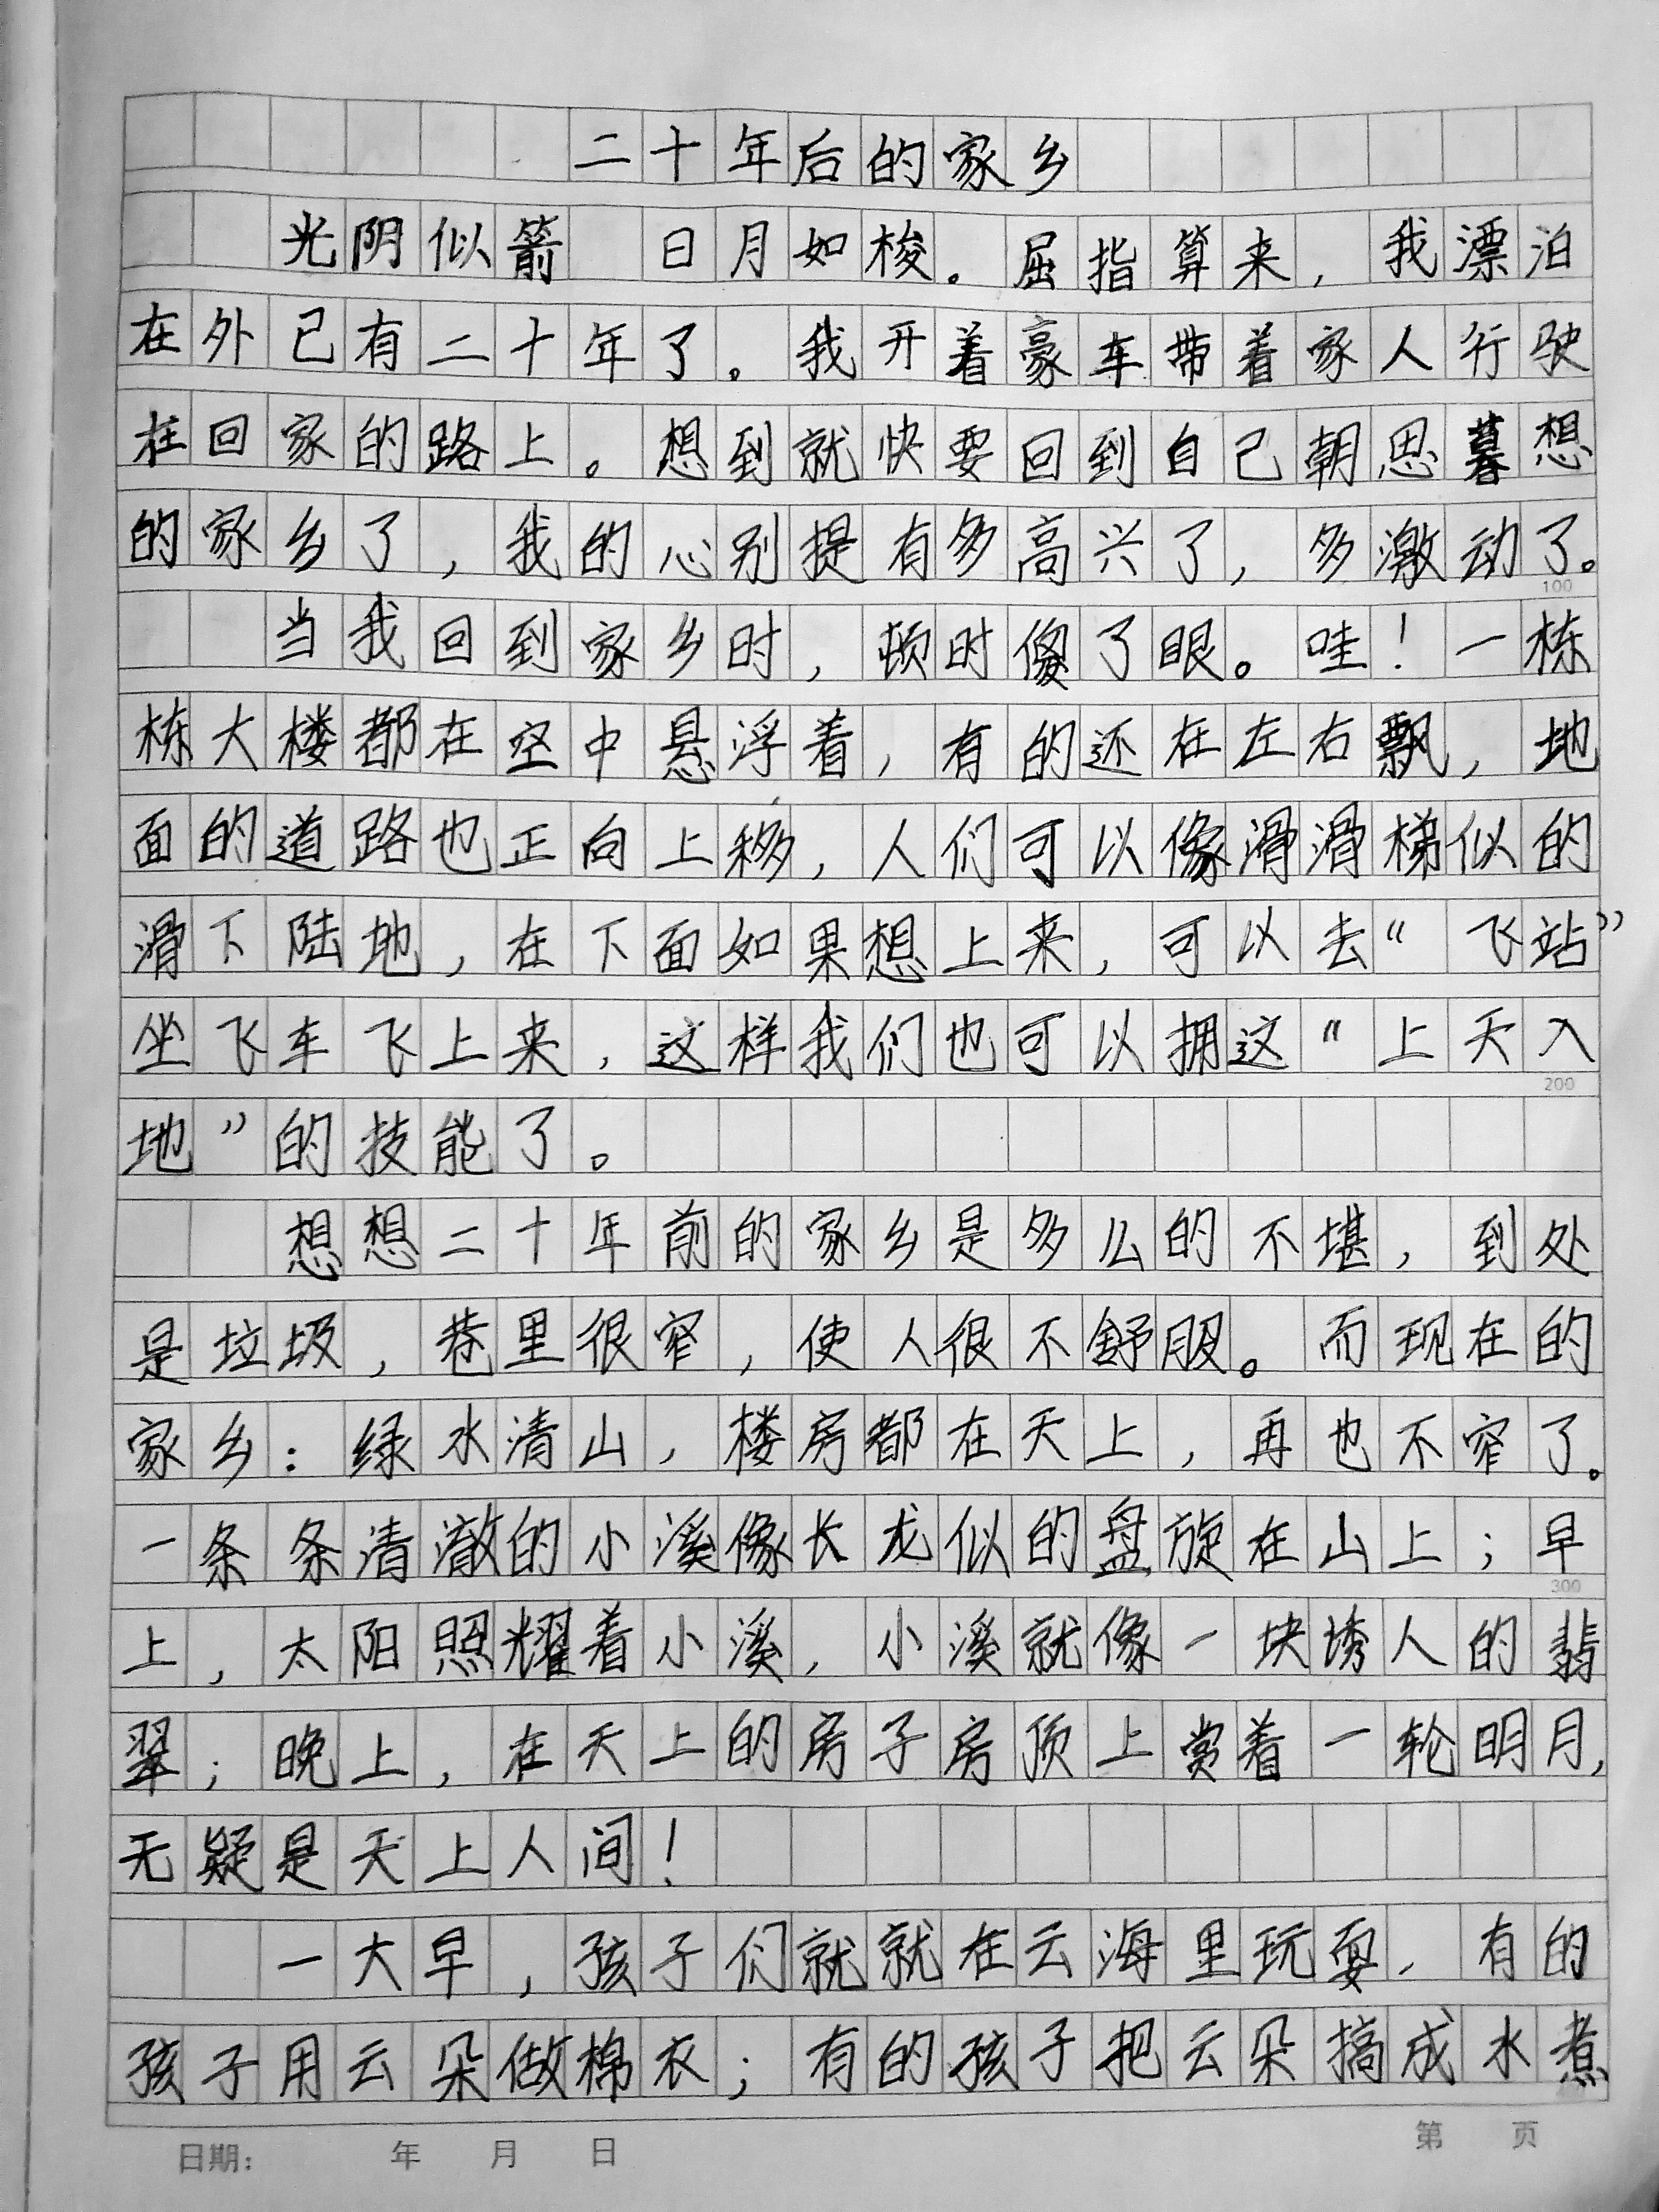 二十年后的家乡
光阴似箭 日月如梭。屈指算来，我漂泊
在外已有二十年了。我开着豪车带着家人行驶
在回家的路上。想到就快要回到自己朝思暮想
的家乡了，我的心别提有多高兴了，多激动了。
100
当我回到家乡时，顿时傻了眼。哇！一栋
栋大楼都在空中悬浮着，有的还在左右飘，地
面的道路也正向上移，人们可以像滑滑梯似的
滑下陆地，在下面如果想上来，可以去“飞站”
坐飞车飞上来，这样我们也可以拥这“上天入
200
地”的技能了。
想想二十年前的家乡是多么的不堪，到处
是垃圾，巷里很窄，使人很不舒服。而现在的
家乡：绿水清山，楼房都在天上，再也不窄了。
一条条清澈的小溪像长龙似的盘旋在山上；早
300
上，太阳照耀着小溪，小溪就像一块诱人的翡
翠；晚上，在天上的房子房顶上赏着一轮明月，
无疑是天上人间！
一大早，孩子们就就在云海里玩耍，有的
孩子用云朵做棉衣；有的孩子把云朵搞成水煮
日期： 年 月 日
第 页